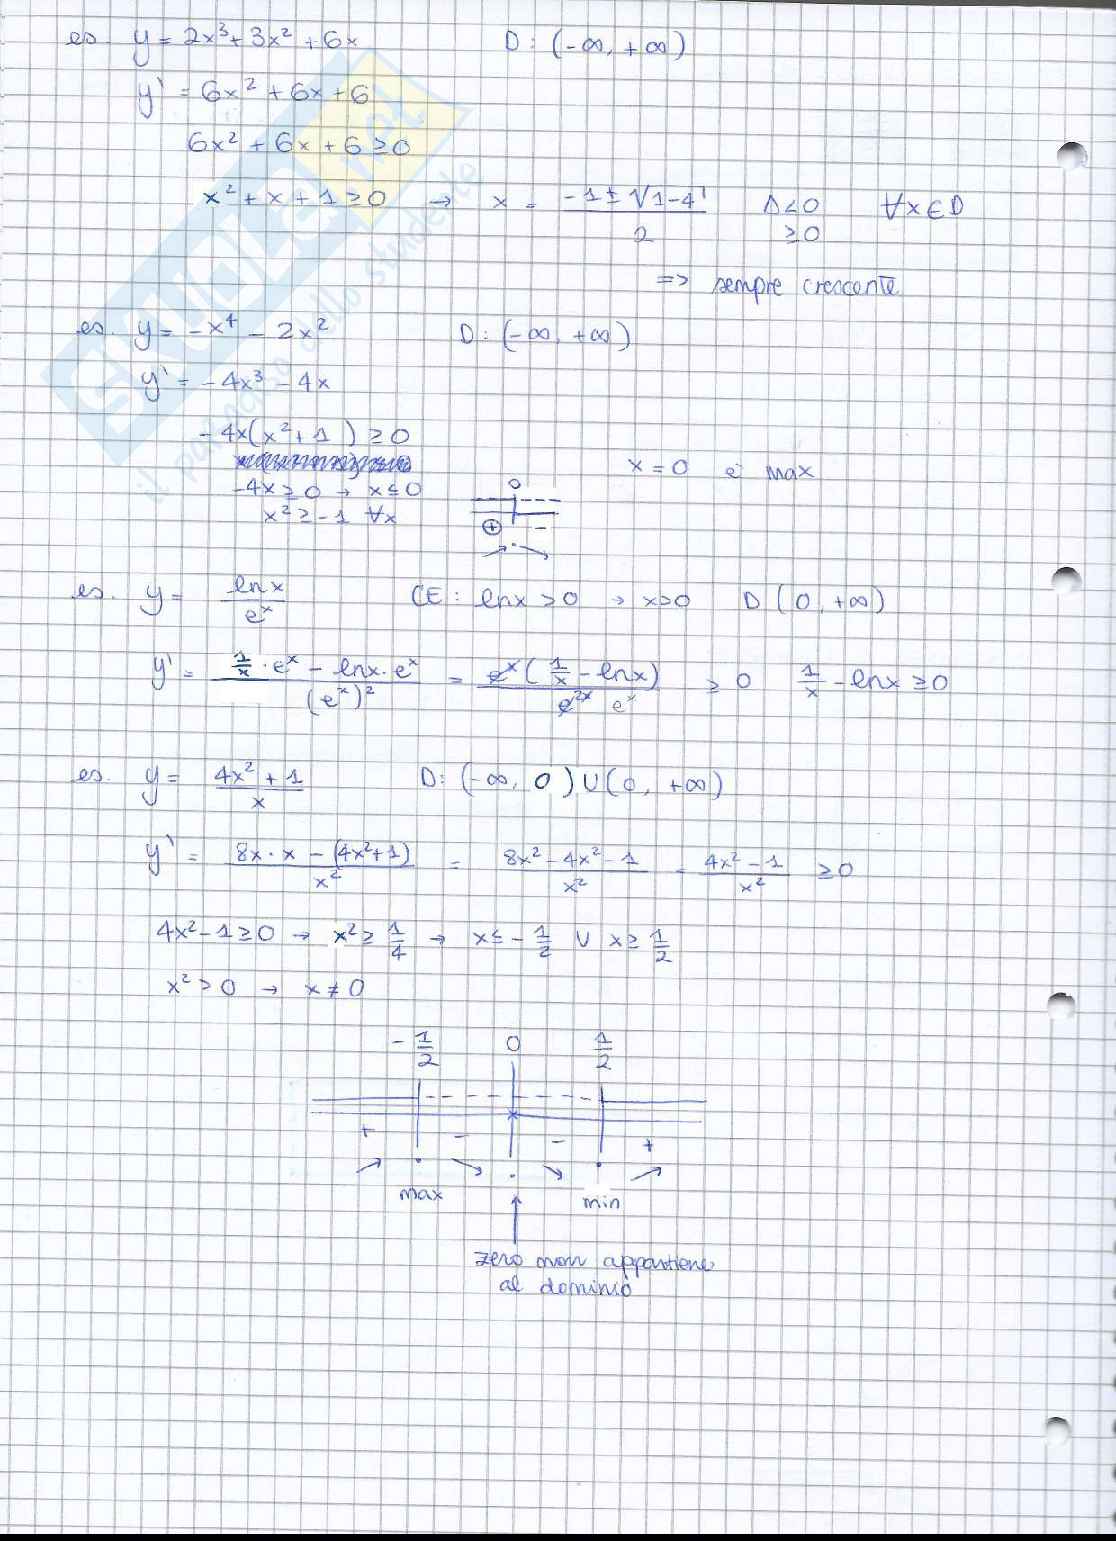 es. y = 2x³ + 3x² + 6x D: (-∞, +∞)
y' = 6x² + 6x + 6
6x² + 6x + 6 ≥ 0
x² + x + 1 ≥ 0 → x = (-1 ± √(1-4))/2 Δ<0 ≥0 ∀x∈D
=> sempre crescente
es. y = -x⁴ - 2x² D: (-∞, +∞)
y' = -4x³ - 4x
-4x(x² + 1) ≥ 0
-4x ≥ 0 → x ≤ 0
x² ≥ -1 ∀x
0
+ -
x = 0 è max
es. y = ln x / eˣ CE: ln x > 0 → x>0 D (0, +∞)
y' = (1/x · eˣ - ln x · eˣ)/(eˣ)² = eˣ(1/x - ln x)/e²ˣ eˣ ≥ 0 1/x - ln x ≥ 0
es. y = (4x² + 1)/x D: (-∞, 0) ∪ (0, +∞)
y' = (8x · x - (4x²+1))/x² = (8x² - 4x² - 1)/x² = (4x² - 1)/x² ≥ 0
4x² - 1 ≥ 0 → x² ≥ 1/4 → x ≤ -1/2 ∪ x ≥ 1/2
x² > 0 → x ≠ 0
-1/2 0 1/2
x
+ - - +
max min
zero non appartiene
al dominio
SKUOLA.net
il paradiso dello studente